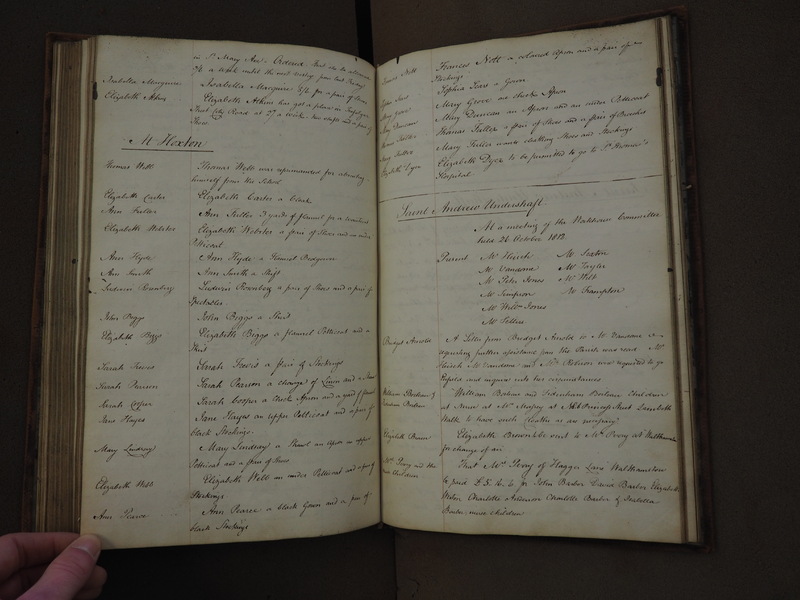 in St. Mary Axe Ordered that she be allowed
2/6 a Week until the next
Isabella Macquire
Isabella Macquire 5/6 for a pair of Shoes
Elizabeth Atkins
Elizabeth Atkins has got a place in
Road at 2/ a Week two
Shoes
At Hoxton
Thomas Webb
Thomas Webb was reprimanded for absenting
himself from the School
Elizabeth Carter
Elizabeth Carter a Cloak
Ann Fuller
Ann Fuller 3 yards of flannel for a
Elizabeth Webster
Elizabeth Webster a pair of Shoes and an under
Petticoat
Ann Hyde
Ann Hyde a flannel Bedgown
Ann Smith
Ann Smith a Shift
Ludwin Rosenberg
Ludwin Rosenberg a pair of Shoes and a pair of
Spectacles
John Beggs
John Beggs a Shirt
Elizabeth Beggs
Elizabeth Beggs a flannel Petticoat and a
Shift
Sarah
Sarah a pair of Stockings
Sarah Pearson
Sarah Pearson a change of Linen and a Shawl
Sarah Cooper
Sarah Cooper a Check Apron and a yard of flannel
Jane Hayes
Jane Hayes an upper Petticoat and a pair of
black Stockings
Mary Lindsay
Mary Lindsay a Shawl an upper
Petticoat and a pair of Shoes
Elizabeth Webb
Elizabeth Webb an under Petticoat and a pair of
Stockings
Ann Pearce
Ann Pearce a black Gown and a pair of
black Stockings
Frances Nott
Frances Nott a colored Apron and a pair of
Stockings
Sophia
Sophia a Gown
Mary Grove
Mary Grove a check Apron
Mary Duncan
Mary Duncan an Apron and an under Petticoat
Thomas Fuller
Thomas Fuller a pair of Shoes and a pair of Breeches
Mary Fuller
Mary Fuller wants clothing Shoes and Stockings
Elizabeth Dyer
Elizabeth Dyer to be permitted to go to St. Thomas's
Hospital
Saint Andrew Undershaft
At a meeting of the Workhouse Committee
held 26 October 1812
Present Mr Hench Mr Sexton
Mr Vandome Mr Taylor
Mr Peter Jones Mr Webb
Mr Simpson Mr Frampton
Mr Willm Jones
Mr
Bridget Arnold
A Letter from Bridget Arnold to Mr Vandome re-
questing further assistance from the Parish was read Mr
Hench Mr Vandome and Mr Robson was requested to go
and inquire into her circumstances
William
William and Barber Children
at Nurse at Mrs at No 6 Princes Street Lambeth
Walk to have such Cloaths as are necessary
Elizabeth Brown
Elizabeth Brown to be sent to Mrs Perry at Walthamstow
for change of air
Mrs Perry and the
Nurse Children
That Mrs Perry of Hagger Lane Walthamstow
be paid for John Barber David Barber Elizabeth
Weston Charlotte Anderson Charlotte Barber & Isabella
Barber nurse children